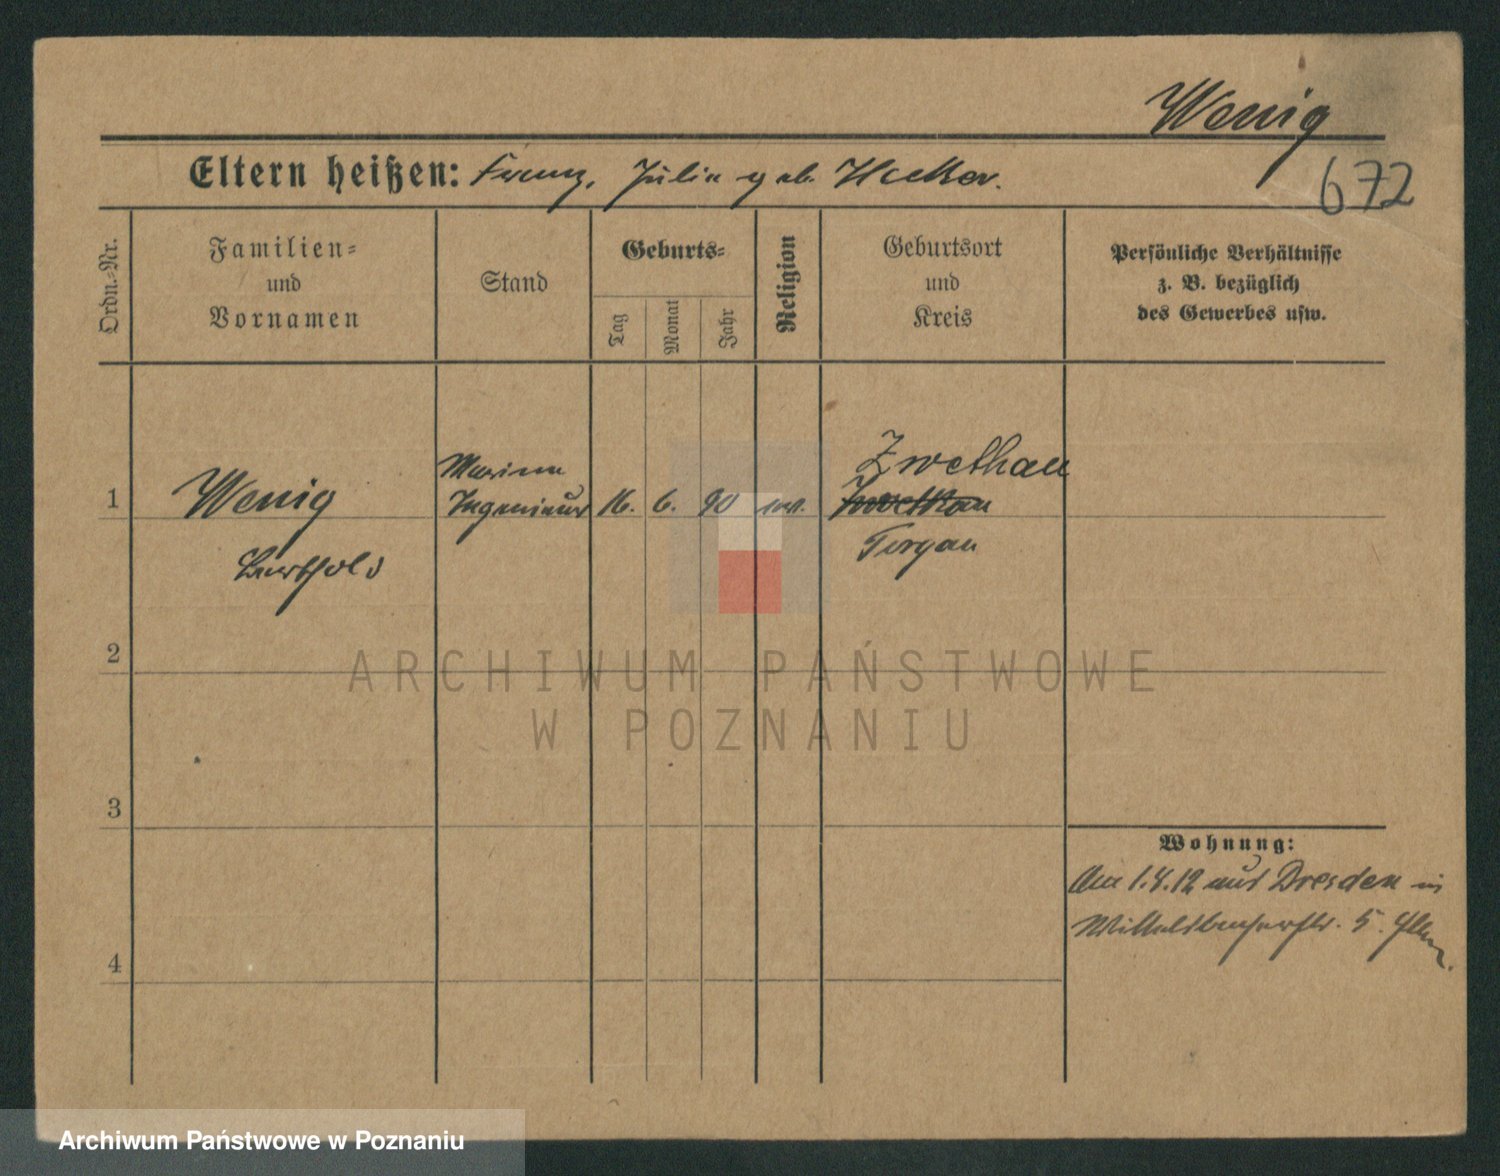 Wenig
672
Eltern heißen: Franz, Julia geb.
Ordn.-Nr.
Familien-
und
Vornamen
Stand
Geburts-
Tag
Monat
Jahr
Religion
Geburtsort
und
Kreis
Persönliche Verhältnisse
z. B. bezüglich
des Gewerbes usw.
1
Wenig
Berthold
Marine
Ingenieur
16.
6.
90
ev.
Zwethau
Zwethau
Torgau
2
ARCHIWUM PAŃSTWOWE
W POZNANIU
3
4
Wohnung:
Am 1.4.12 aus Dresden in
Wittelsbacherstr. 5.
Archiwum Państwowe w Poznaniu